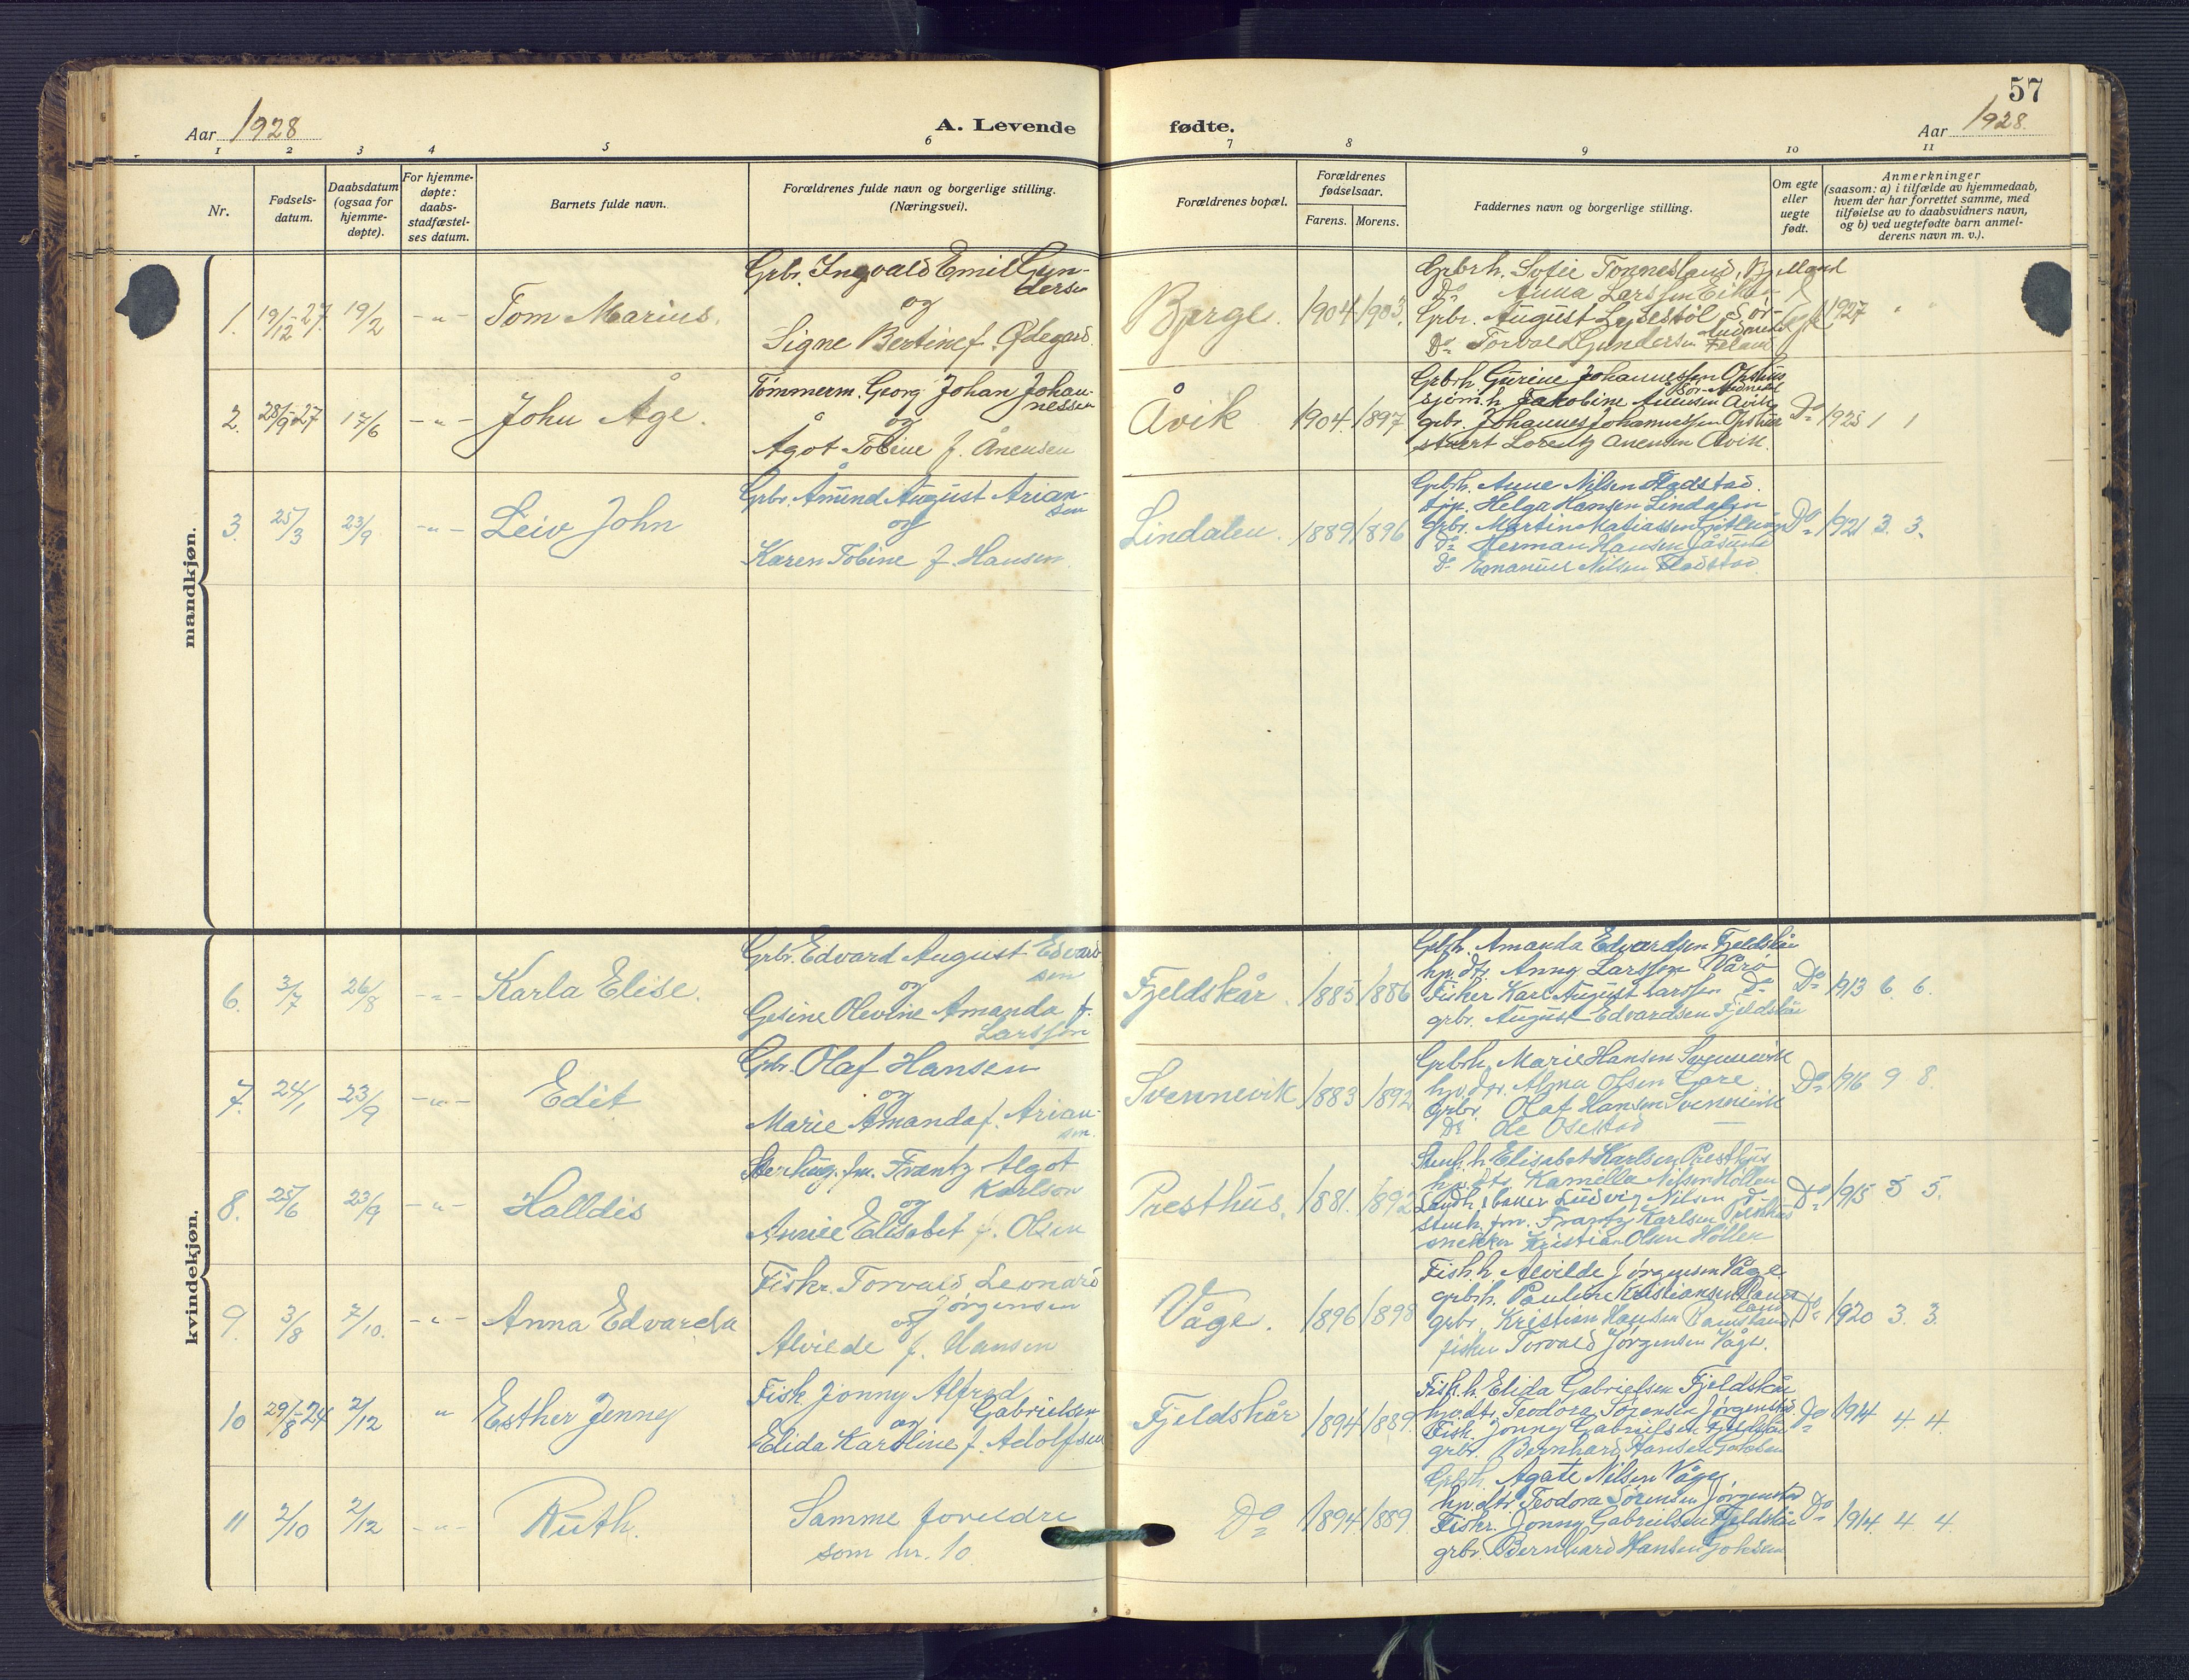 57
Aar 1928
A. Levende fødte.
Aar 1928.
1 2 3 4 5 6 7 8 9 10 11
Nr.
Fødsels-
datum.
Daabsdatum
(ogsaa for
hjemme-
døpte).
For hjemme-
døpte:
daabs-
stadfæstel-
ses datum.
Barnets fulde navn.
Forældrenes fulde navn og borgerlige stilling.
(Næringsvei).
Forældrenes bopæl.
Forældrenes
fødselsaar.
Farens. Morens.
Faddernes navn og borgerlige stilling.
Om egte
eller
uegte
født.
Anmerkninger
(saasom: a) i tilfælde av hjemmedaab,
hvem der har forrettet samme, med
tilføielse av to daabsvidners navn,
og b) ved uegtefødte barn anmel-
derens navn m. v.).
mandkjøn.
1. 19/12-27 19/2 -"- Tom Marius.
Grbr. Ingvald Emil Gun-
dersen
og
Signe Bertine f. Ødegard.
Børge. 1904. 1903.
Grbrh. Sofie Tonnesland, Bjelland
Do Anna Larssen
Grbr. August Lydestöl Sör-
Audnedal
Do Torvald Gundersen
1927
2. 28/9-27 17/6 -"- John Åge.
Tömmerm. Georg Johan Johan-
nessen
og
Ågot Tobine f. Ånensen
Åvik 1904. 1897.
Grbrh. Gurine Johannessen
Sör-Audnedal
sjöm.h. Jakobine Ånensen Åvik
grbr. Johannes Johannessen
Lorentz Anensen Åvik.
Do 1925 1 1
3. 25/3 23/9 -"- Leiv John
Grbr. Åmund August Arian-
sen
og
Karen Tobine f. Hansen.
Lindalen. 1889. 1896
Grbrh. Anne Nilsen Fladstad.
tjp. Helga Hansen Lindalen
Grbr. Martin Matiassen
Do Herman Hansen Jåsund
Do Emanuel Nilsen Fladstad
Do 1921 3. 3.
kvindekjøn.
6. 3/7 26/8 -"- Karla Elise.
Grbr. Edvard August Edvard
sen
og
Gesine Olevine Amanda f.
Larssen
Fjeldskår. 1885 1886
Grbh. Amanda Edvardsen Fjeldskår
hp. dtr. Anny Larssen Värö
Fisker Karl August Larssen Do
grbr. August Edvardsen Fjeldskår
Do 1913 6. 6.
7. 24/1 23/9 -"- Edit
Grbr. Olaf Hansen
og
Marie Amanda f. Arian-
sen.
Svennevik 1883 1892
Grbrh. Marie Hansen Svennevik
hp. dtr. Alma Olsen Gare
Grbr. Olaf Hansen Svennevik
Do Ole Osestad
Do 1916 9 8.
8. 25/6 23/9 -"- Halldis
Frantz Algot
Karlson
og
Annie Elisabet f. Olsen
Presthus. 1881. 1892
Stenh. h. Elisabet Karlsen Presthus
hp. dtr. Kamilla Nilsen Höllen
Landh. baker Ludvig Nilsen Do
stenh. fm. Frantz Karlsen Presthus
snekker Kristian Olsen Höllen
Do 1915 5 5.
9. 3/8 7/10. -"- Anna Edvarda
Fiskr. Torvald Leonard
Jörgensen
og
Alvilde f. Hansen
Våge. 1896 1898
Fish. h. Alvilde Jörgensen Våge.
grbrh. Pauline Kristiansen Rams
land
grbr. Kristian Hansen Ramsland
fisker Torvald Jörgensen Våge.
Do 1920 3. 3.
10 29/8-24 2/12 " Esther Jenny
Fisk. Jonny Alfred
Gabrielsen
og
Elida Karoline f. Adolfsen
Fjeldskår 1894 1889.
Fisk.h. Elida Gabrielsen Fjeldskår
hp. dtr. Teodora Sörensen
Fisk. Jonny Gabrielsen Fjeldskår
grbr. Bernhard Hansen
Do 1914 4 4.
11 2/10 2/12 -"- Ruth.
Samme foreldre
som nr. 10
Do 1894 1889.
Grbrh. Agate Nilsen Våge,
hp. dtr. Teodora Sörensen
Fiskr. Jonny Gabrielsen Fjeldskår
grbr. Bernhard Hansen
Do 1914. 4 4.